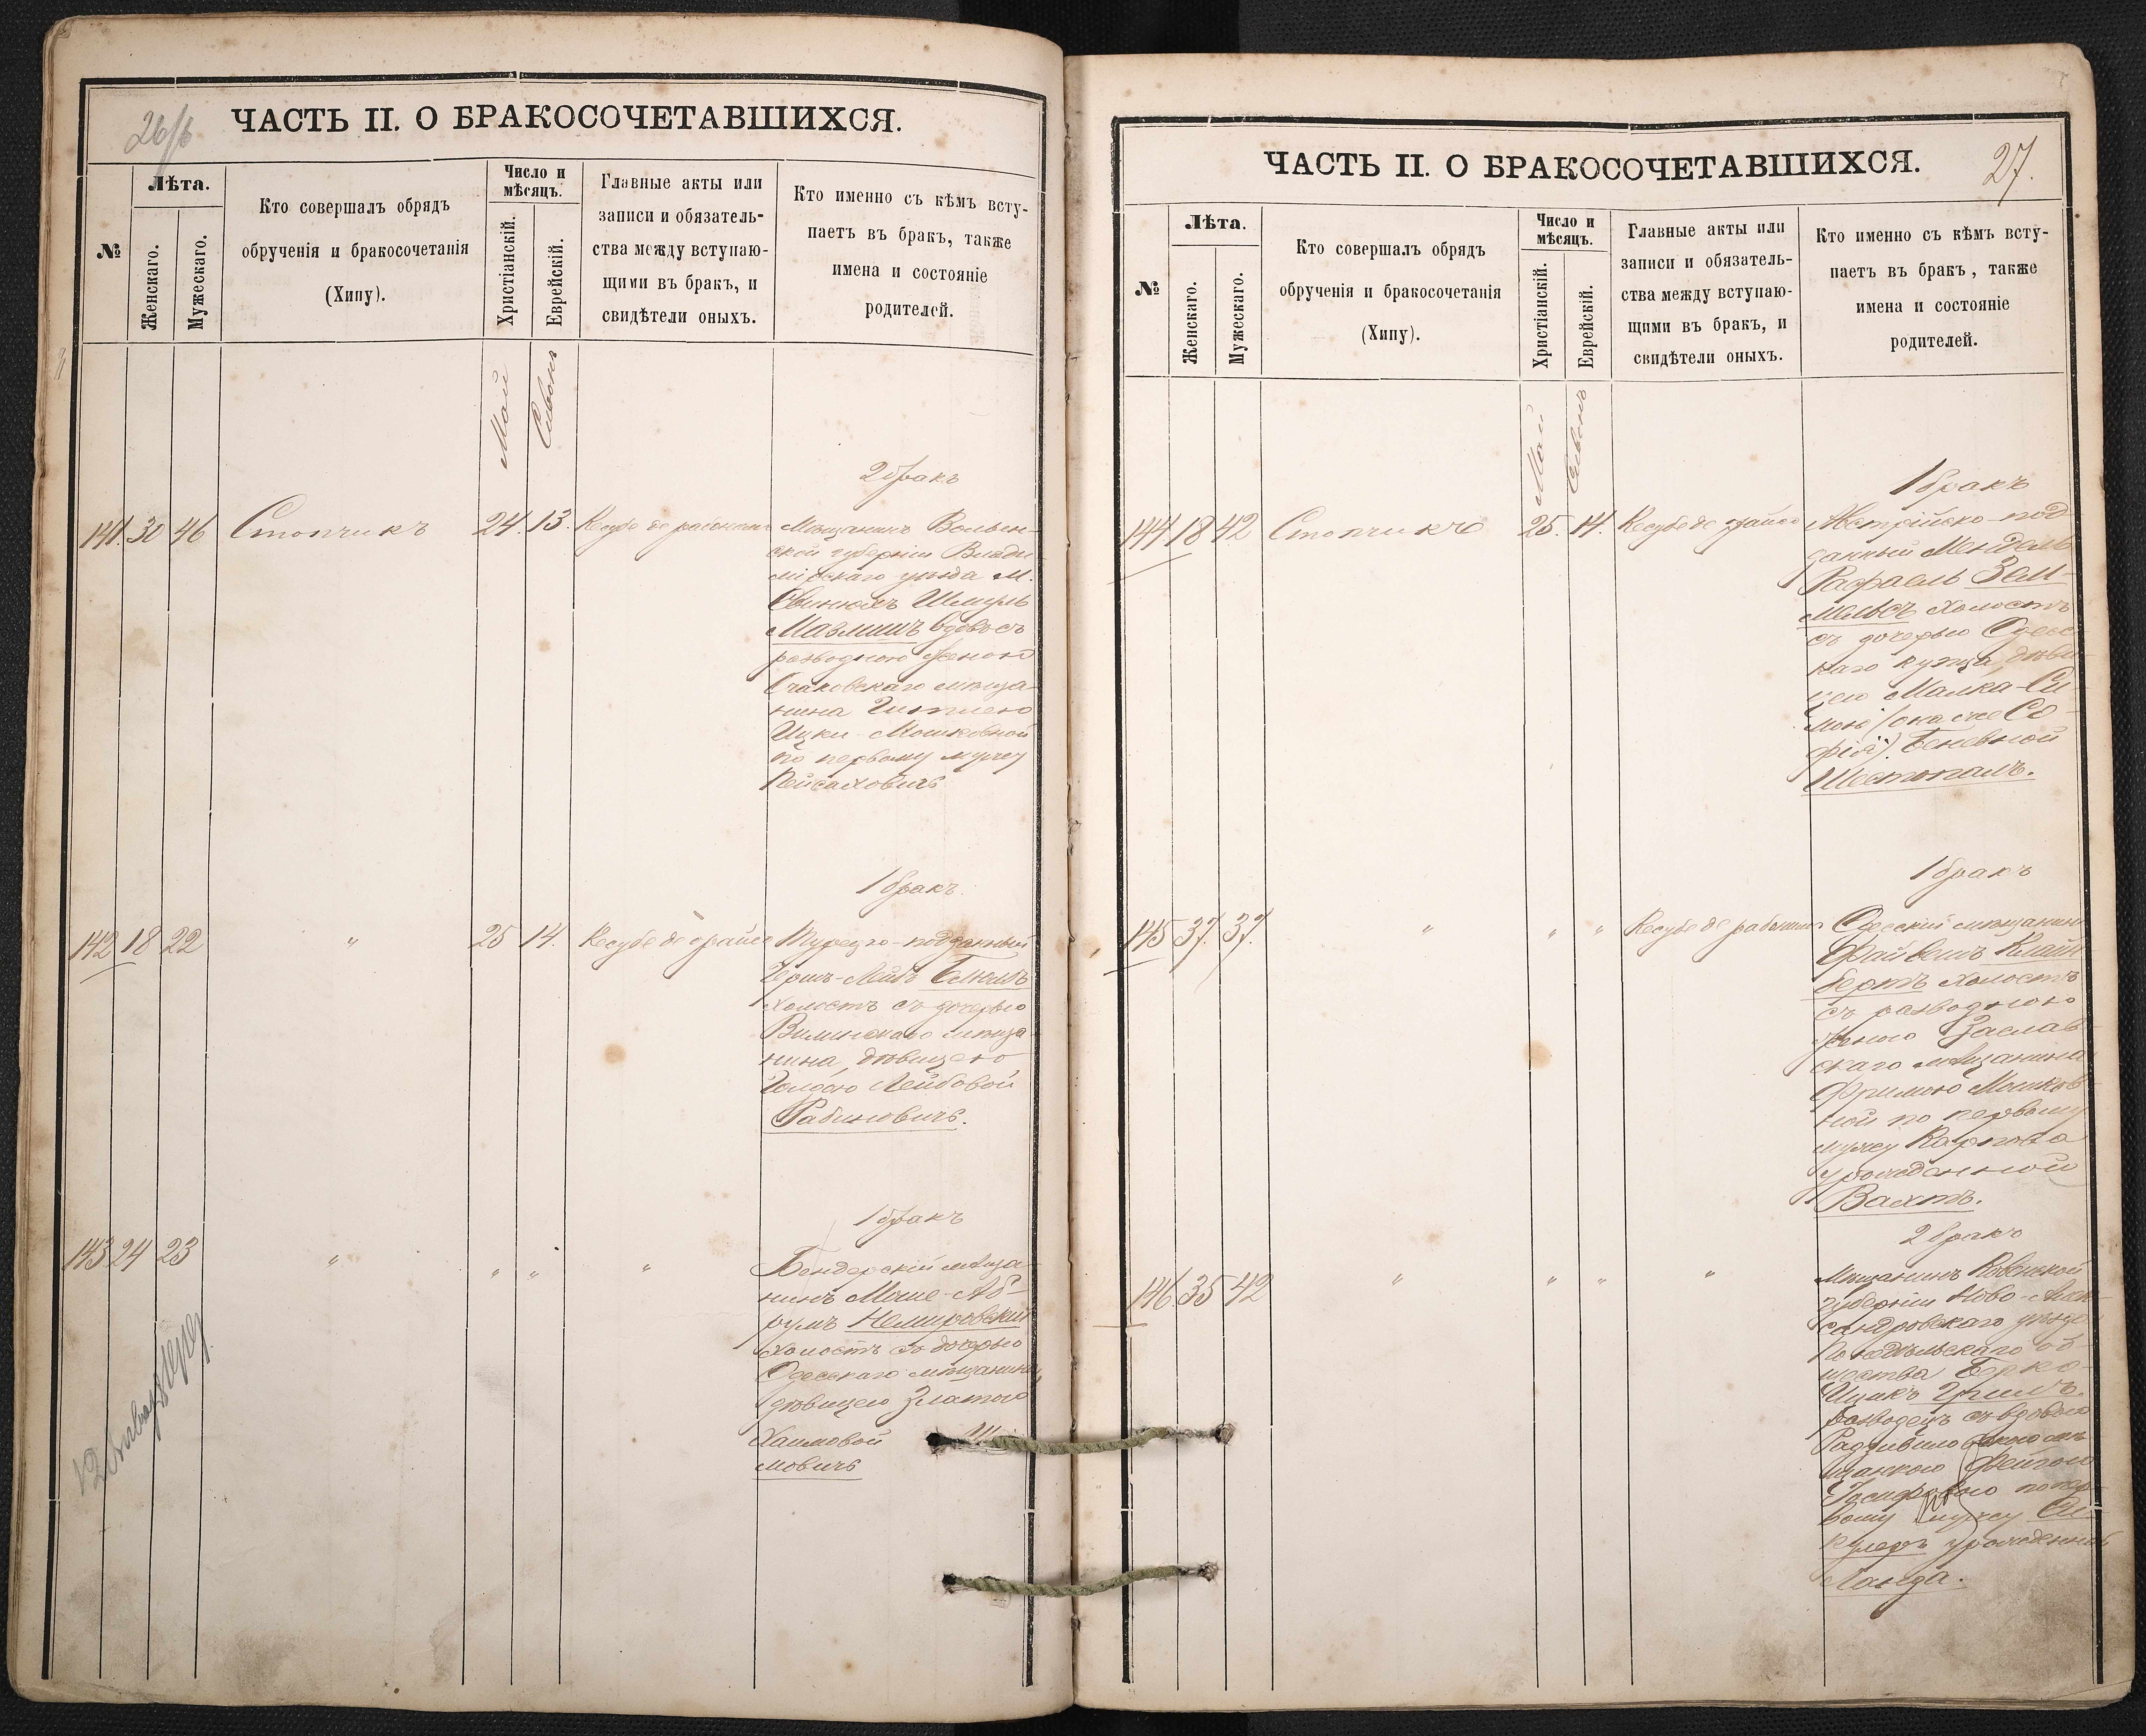 26/б
ЧАСТЬ II. О БРАКОСОЧЕТАВШИХСЯ.
№
Лѣта.
Женскаго.
Мужескаго.
Кто совершалъ обрядъ
обрученія и бракосочетанія
(Хипу).
Число и
мѣсяцъ.
Христіанскій.
Еврейскій.
Главные акты или
записи и обязатель-
ства между вступаю-
щими въ бракъ, и
свидѣтели оныхъ.
Кто именно съ кѣмъ всту-
паетъ въ бракъ, также
имена и состояніе
родителей.
Май
Сивонъ
2 бракъ
141. 30 46 Стопчикъ 24. 13. Кесубе де
Мѣщанинъ Волын-
ской губерніи Влади
мірскаго уѣзда м.
Свинюхъ Шмуль
вдовъ съ
разводною женою
Очаковскаго мѣща-
нина
Ицки Мошковной
по первому мужу
Пейсаховичъ
1 бракъ
142 18 22 " 25 14. Кесубе де
Турецко-подданный
Герш-Лейб
холостъ съ дочерью
Виленскаго мѣща-
нина, дѣвицею
Голдою Лейбовой
Рабиновичъ.
1 бракъ
143 24 23 " " " "
Бендерскій мѣща-
нинъ Моше-Аб-
румъ Немировскій
холостъ съ дочерью
Одесскаго мѣщанина,
дѣвицею Златою
Хаимовой
мовичъ
27.
ЧАСТЬ II. О БРАКОСОЧЕТАВШИХСЯ.
№
Лѣта.
Женскаго.
Мужескаго.
Кто совершалъ обрядъ
обрученія и бракосочетанія
(Хипу).
Число и
мѣсяцъ.
Христіанскій.
Еврейскій.
Главные акты или
записи и обязатель-
ства между вступаю-
щими въ бракъ, и
свидѣтели оныхъ.
Кто именно съ кѣмъ всту-
паетъ въ бракъ, также
имена и состояніе
родителей.
Май
Сивонъ
1 бракъ
144 18 42 Стопчикъ 25. 14. Кесубе де
Австрійско-под
данный Мендель
Рафаель Зем-
мельсъ холостъ
съ дочерью Одес-
каго купца, дѣви-
цею Малка-Си
мою (она же Со-
фія) Беневной
Шестопалъ.
1 бракъ
145 37. 37. " " " Кесубе де
Одесскій мѣщанинъ
Файвель Клайн
бертъ холостъ
съ разводною
женою Заслав-
скаго мѣщанина
Фримою Мошков-
ной по первому
мужу Карпова
урожденной
Вахтъ.
2 бракъ
146. 35 42 " " " "
Мѣщанинъ Ковенской
губерніи Ново-Алек-
сандровскаго уѣзда
об-
щества Берко-
Ицикъ
разводецъ съ вдовою
мѣ
щанкою Фейгою
по пер-
вому мужу
урожденной
Ланда.